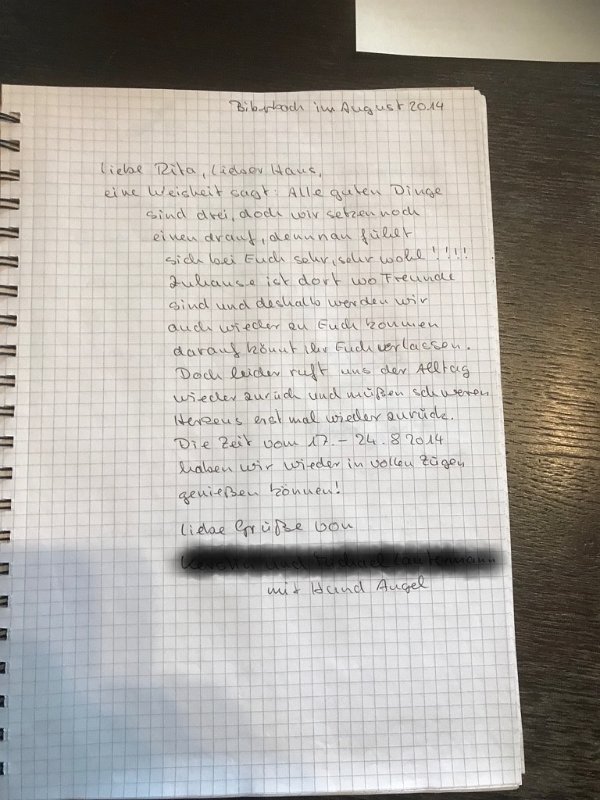 Biberbach im August 2014
Liebe Rita, lieber Hans,
eine Weisheit sagt: Alle guten Dinge
sind drei, doch wir setzen noch
einen drauf, denn man fühlt
sich bei Euch sehr, sehr wohl!!!!
Zuhause ist dort wo Freunde
sind und deshalb werden wir
auch wieder zu Euch kommen
darauf könnt Ihr Euch verlassen.
Doch leider ruft uns der Alltag
wieder zurück und müßen schweren
Herzens erst mal wieder zurück.
Die Zeit vom 17. - 24.8 2014
haben wir wieder in vollen Zügen
genießen können!
Liebe Grüße von
mit Hund Angel